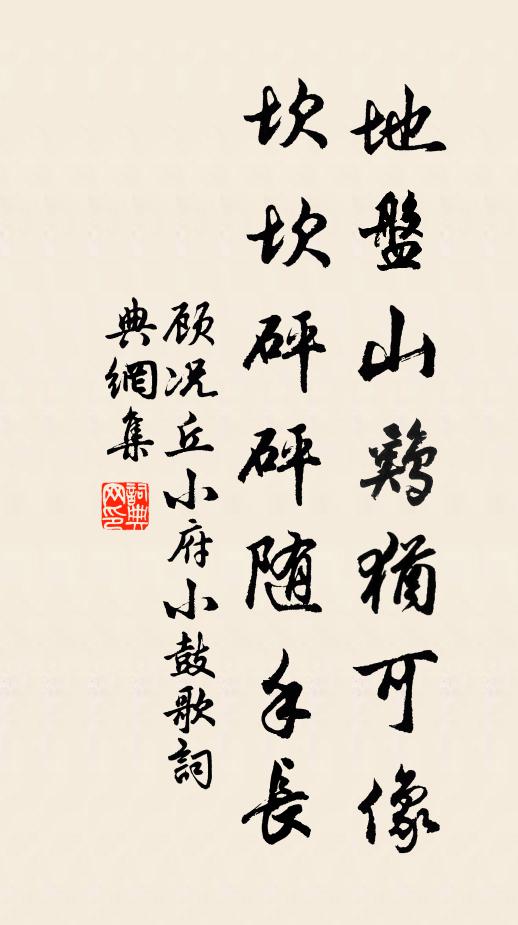 地盤山鷄猶可像
坎坎砰砰随手長
顾况丘小府小鼓歌詞
典網集
詞典
网印